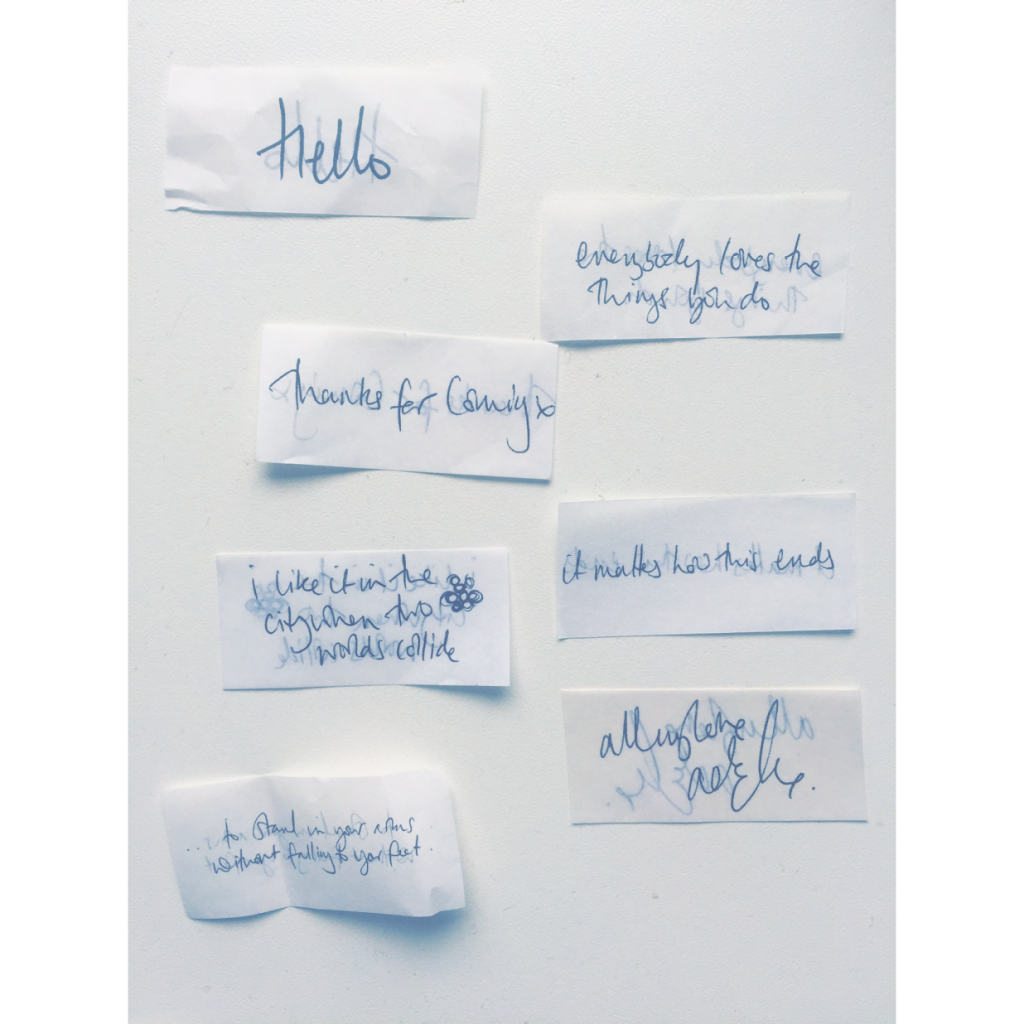 Hello
everybody loves the
things you do
thanks for coming x
i like it in the
city when two
worlds collide
it matters how this ends
all my love
adele.
... to stand in your arms
without falling to your feet.